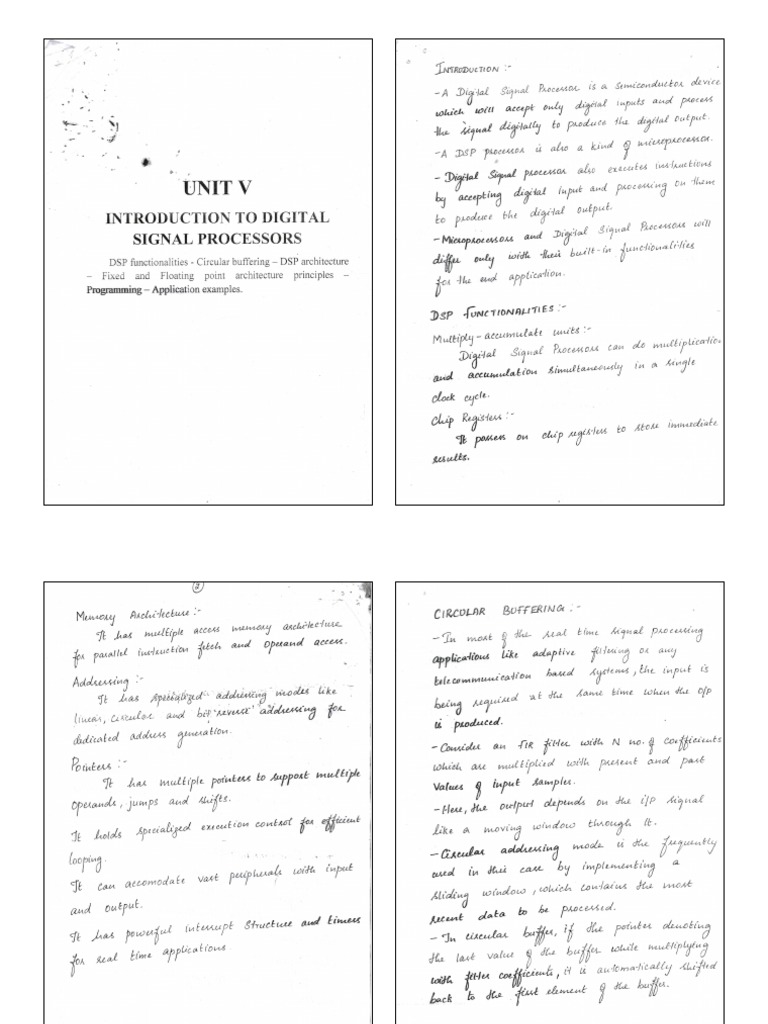 UNIT V
INTRODUCTION TO DIGITAL
SIGNAL PROCESSORS
DSP functionalities - Circular buffering – DSP architecture
– Fixed and Floating point architecture principles –
Programming – Application examples.
INTRODUCTION :-
- A Digital Signal Processor is a semiconductor device
which will accept only digital inputs and process
the signal digitally to produce the digital output.
- A DSP processor is also a kind of microprocessor.
- Digital Signal processor also executes instructions
by accepting digital Input and processing on them
to produce the digital output.
- Microprocessors and Digital Signal Processors will
differ only with their built-in functionalities
for the end application.
DSP FUNCTIONALITIES :-
Multiply - accumulate units :-
Digital Signal Processors can do multiplication
and accumulation simultaneously in a single
clock cycle.
Chip Registers :-
It posses on chip registers to store immediate
results.
2
Memory Architecture :-
It has multiple access memory architecture
for parallel instruction fetch and operand access.
Addressing :-
It has specialized addressing modes like
linear, circular and bit reverse addressing for
dedicated address generation.
Pointers :-
It has multiple pointers to support multiple
operands, jumps and shifts.
It holds specialized execution control for efficient
looping.
It can accomodate vast peripherals with input
and output.
It has powerful interrupt structure and timers
for real time applications
CIRCULAR BUFFERING :-
- In most of the real time signal processing
applications like adaptive filtering or any
telecommunication based systems, the input is
being required at the same time when the o/p
is produced.
- Consider an FIR filter with N no. of coefficients
which are multiplied with present and past
values of input samples.
- Here, the output depends on the i/p signal
like a moving window through it.
- Circular addressing mode is the frequently
used in this case by implementing a
sliding window, which contains the most
recent data to be processed.
- In circular buffer, if the pointer denoting
the last value of the buffer while multiplying
with filter coefficients, it is automatically shifted
back to the first element of the buffer.